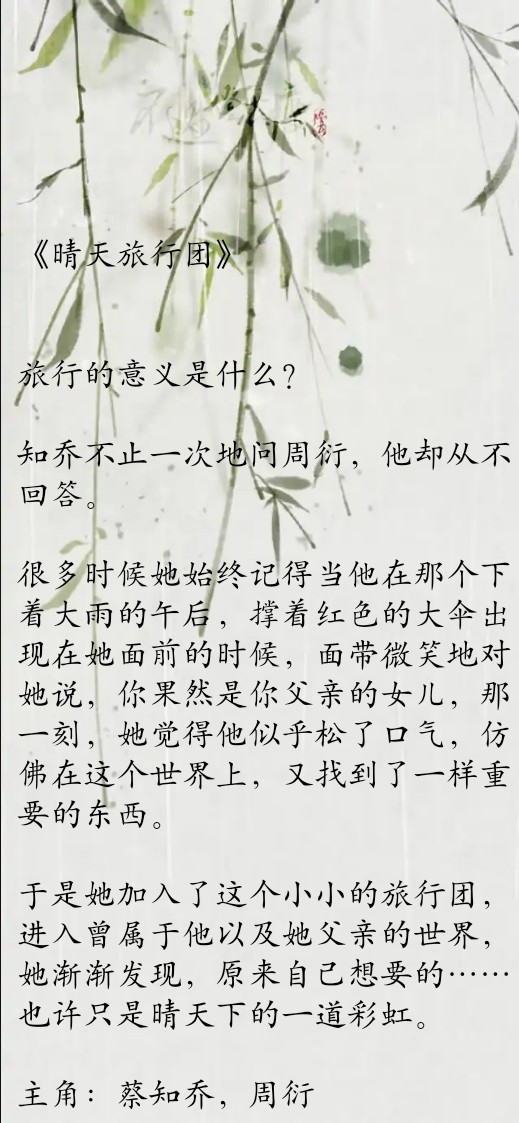 《晴天旅行团》
旅行的意义是什么？
知乔不止一次地问周衍，他却从不
回答。
很多时候她始终记得当他在那个下
着大雨的午后，撑着红色的大伞出
现在她面前的时候，面带微笑地对
她说，你果然是你父亲的女儿，那
一刻，她觉得他似乎松了口气，仿
佛在这个世界上，又找到了一样重
要的东西。
于是她加入了这个小小的旅行团，
进入曾属于他以及她父亲的世界，
她渐渐发现，原来自己想要的……
也许只是晴天下的一道彩虹。
主角：蔡知乔，周衍